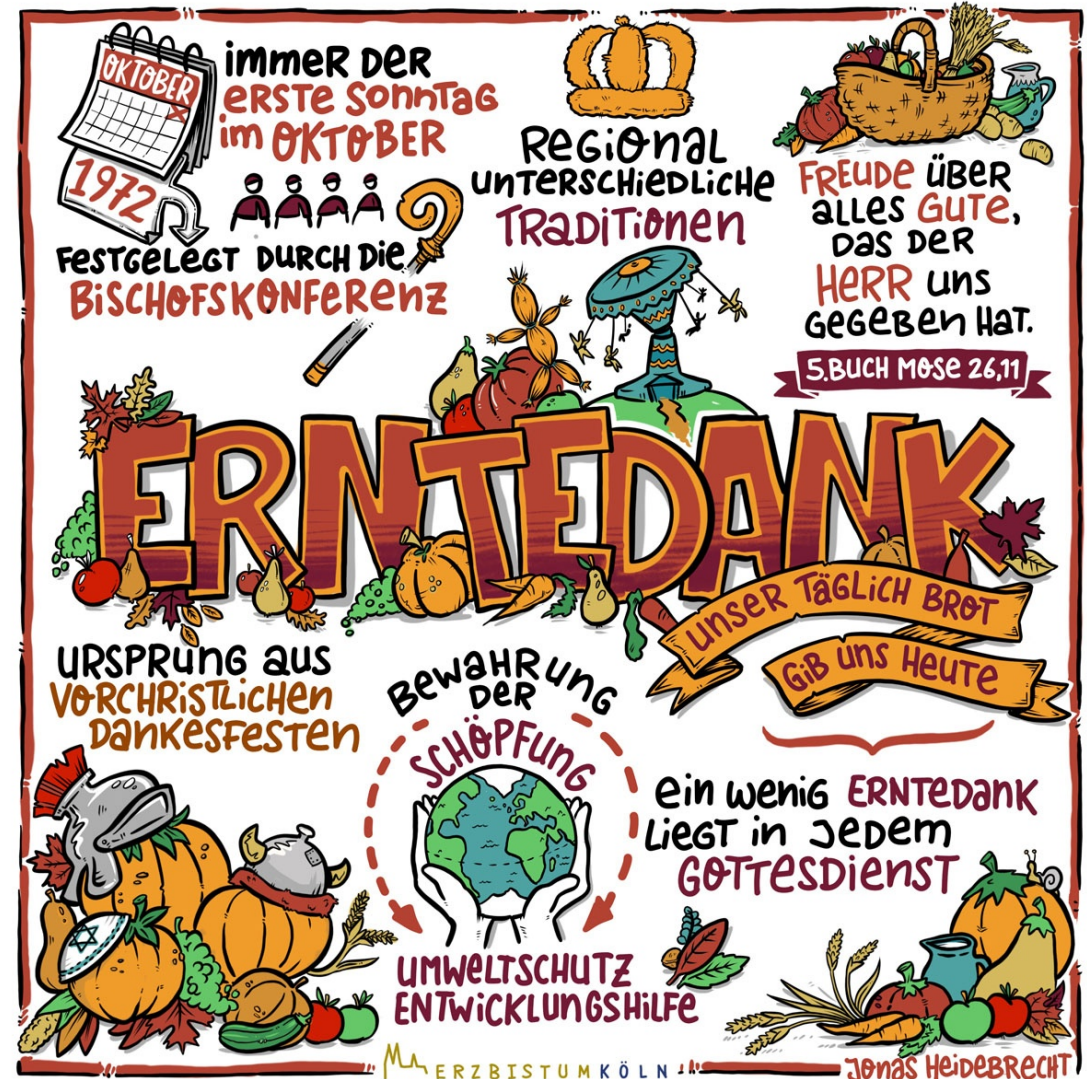 OKTOBER
1972
immer der
erste Sonntag
im OKTOBER
Festgelegt durch die
Bischofskonferenz
Regional
unterschiedliche
Traditionen
Freude über
alles Gute,
das der
Herr uns
gegeben hat.
5. Buch Mose 26,11
ERNTEDANK
unser täglich Brot
gib uns heute
Ursprung aus
vorchristlichen
Dankesfesten
Bewahrung
der
Schöpfung
Umweltschutz
Entwicklungshilfe
ein wenig Erntedank
liegt in jedem
Gottesdienst
ERZBISTUMKÖLN
Jonas Heidebrecht